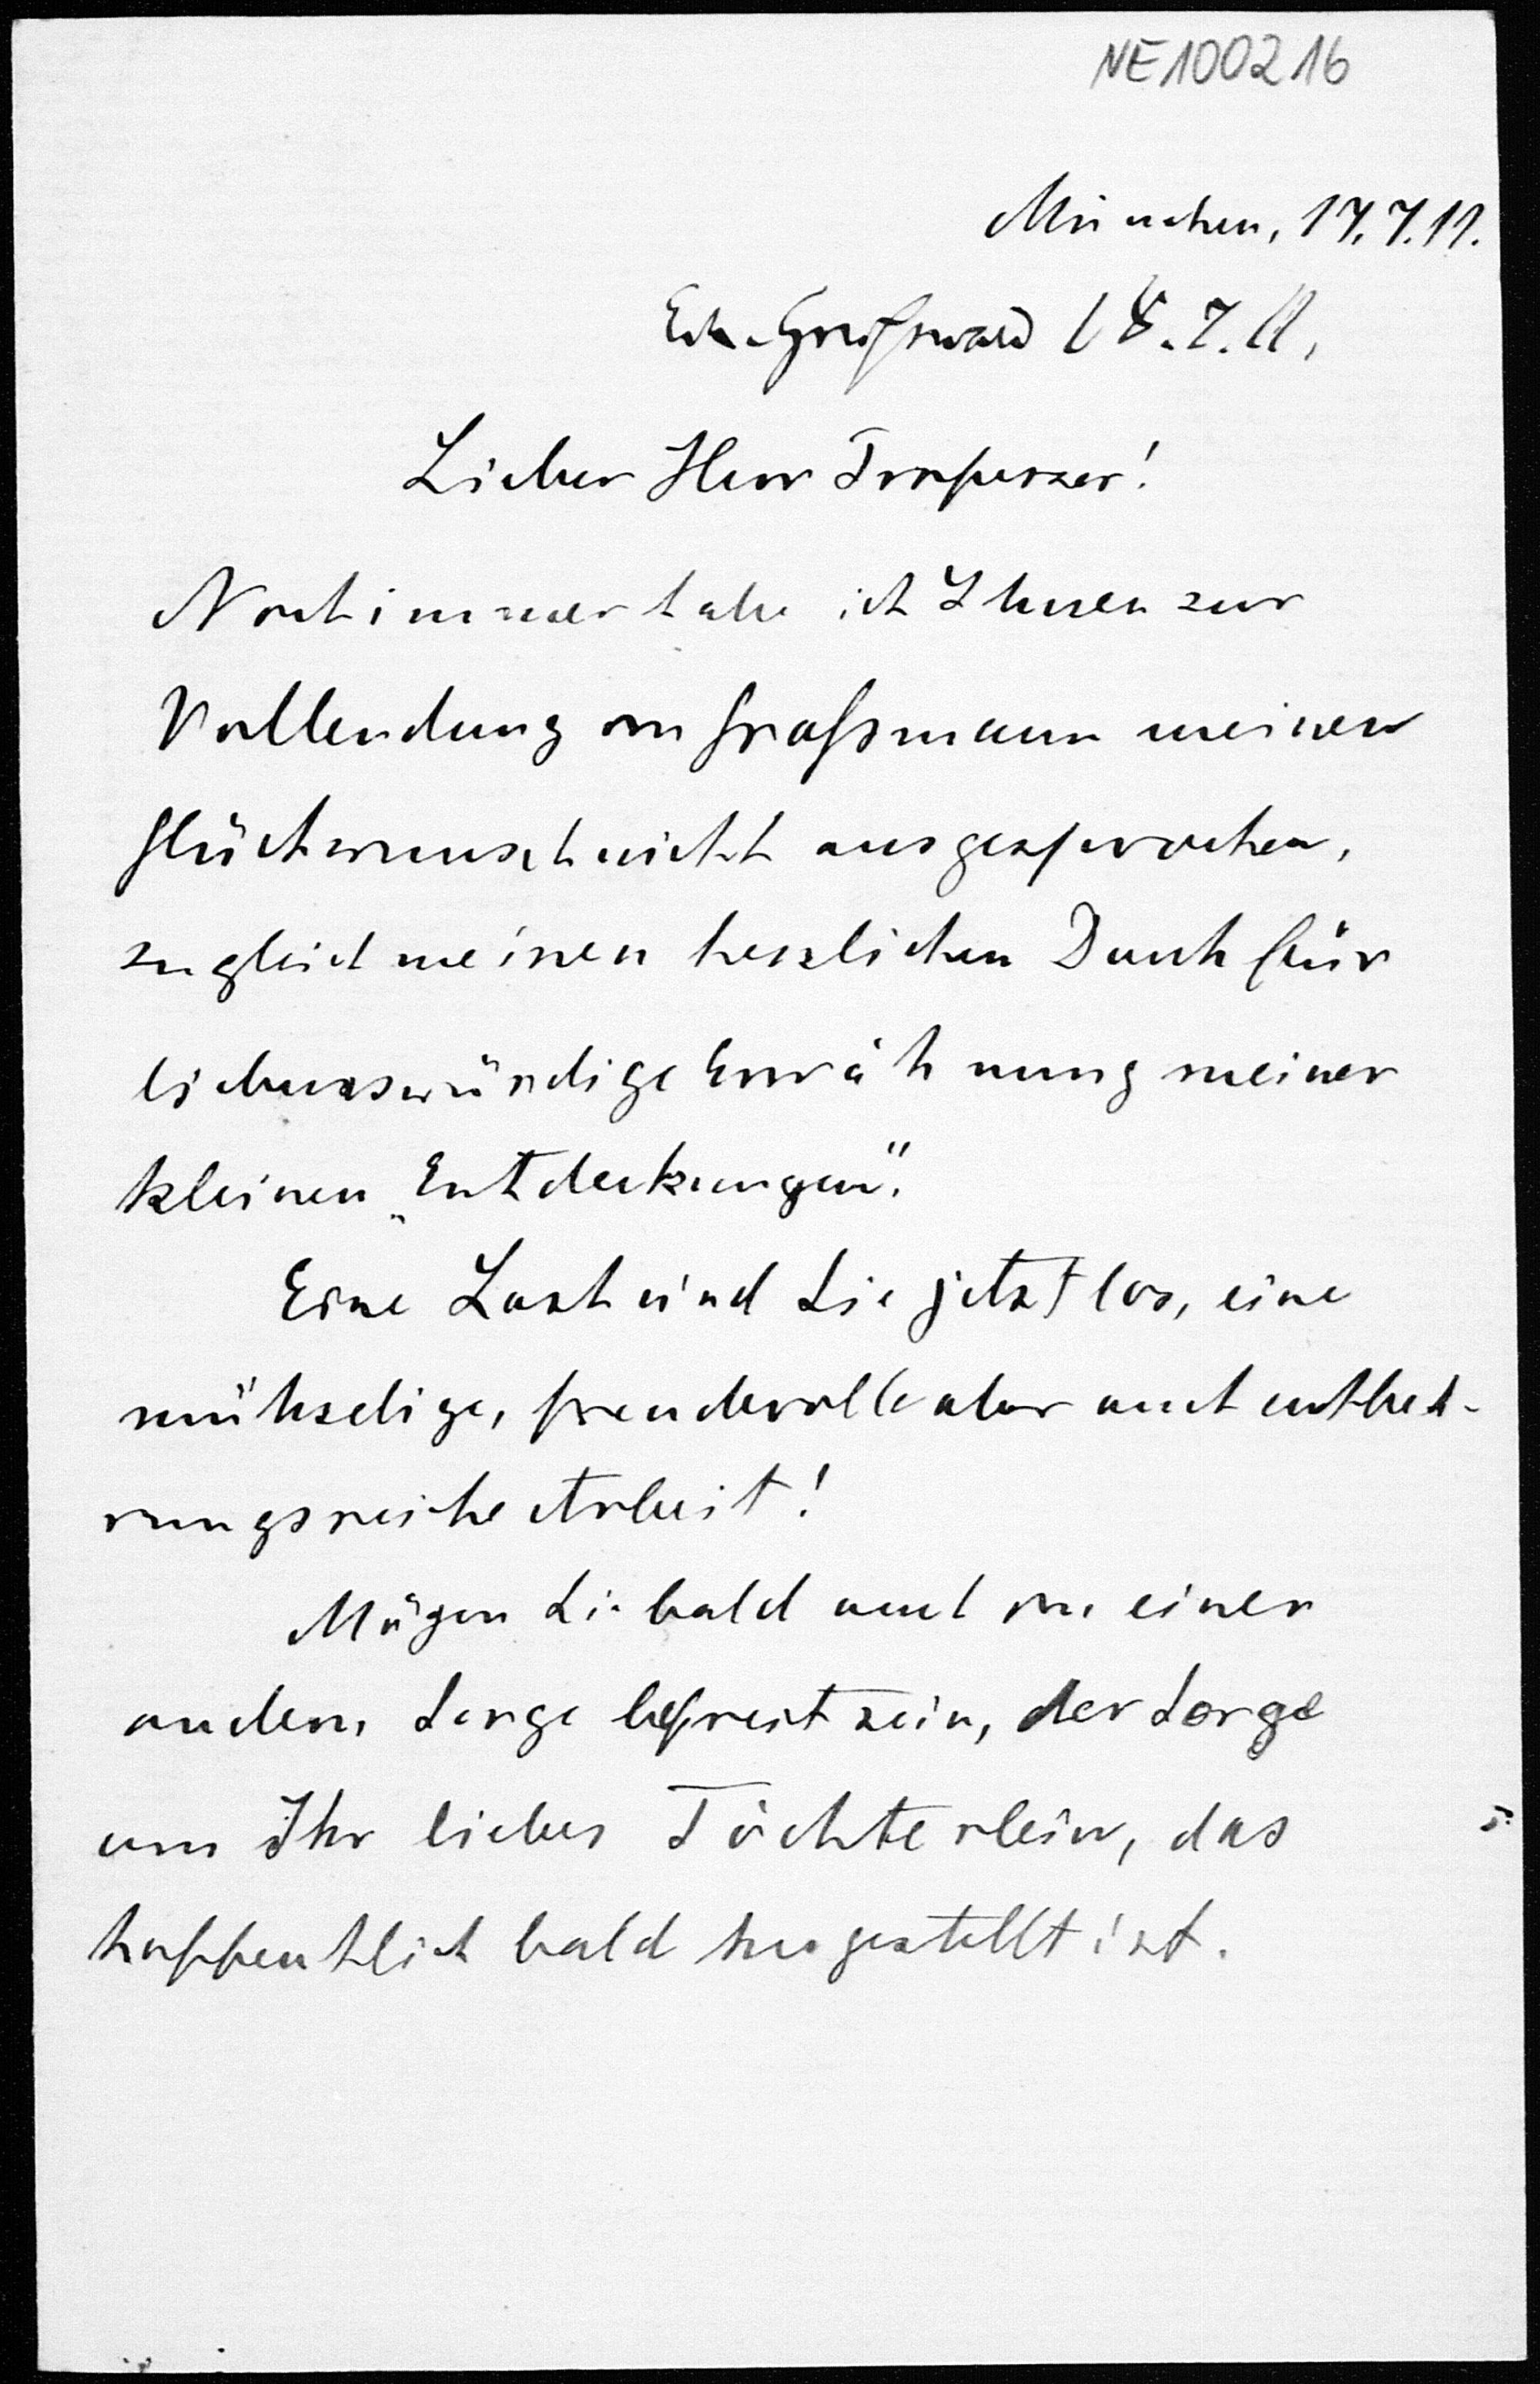 NE100216
München, 17.7.11.
Erh. Greifswald 18.7.11.
Lieber Herr Professor!
Noch immer habe ich Ihnen zur
Vollendung von Graßmann meinen
Glückwunsch nicht ausgesprochen,
zugleich meinen herzlichen Dank für
liebenswürdige Erwähnung meiner
kleinen „Entdeckungen".
Eine Last sind Sie jetzt los, eine
mühselige, freudevolle aber auch entbeh-
rungsreiche Arbeit!
Mögen Sie bald auch von einer
andern Sorge befreit sein, der Sorge
um Ihr liebes Töchterlein, das
hoffentlich bald hergestellt ist.